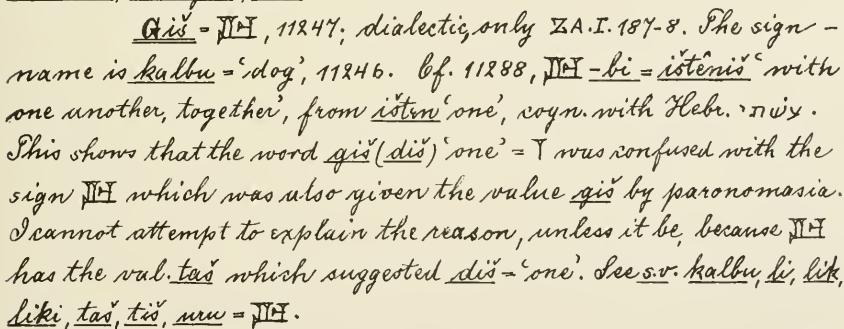 Giš = 𒌨, 11247; dialectic, only ZA. I. 187-8. The sign-
name is kalbu = 'dog', 11246. Cf. 11288, 𒌨-bi = ištêniš 'with
one another, together', from išten 'one', cogn. with Hebr. עשׁתי.
This shows that the word giš (diš) 'one' = 𒁹 was confused with the
sign 𒌨 which was also given the value giš by paronomasia.
I cannot attempt to explain the reason, unless it be, because 𒌨
has the val. taš which suggested diš = 'one'. See s.v. kalbu, li, lik,
liki, taš, tiš, uru = 𒌨.